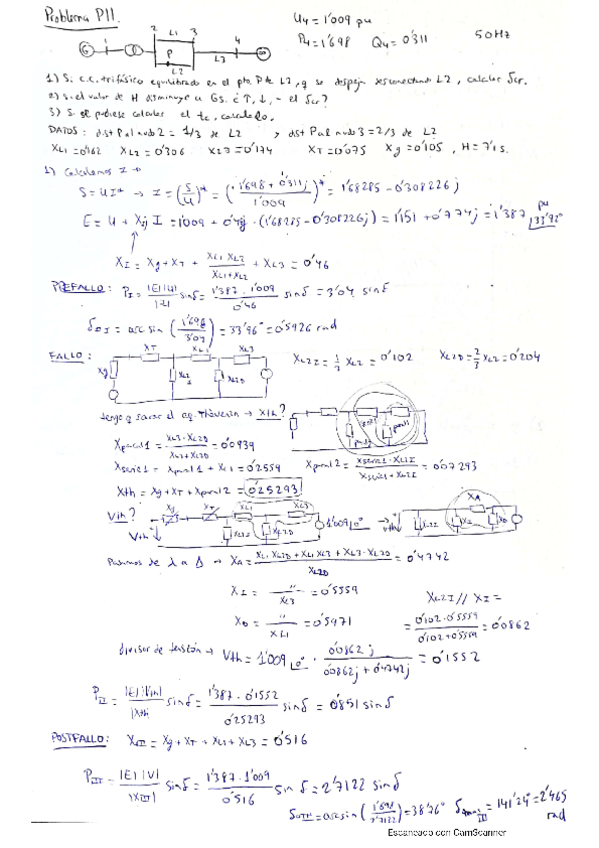 Problema P11.
U4 = 1'009 pu
P4 = 1'698 Q4 = 0'311 50Hz
G 1 2 L1 3 4
P
L2 L3
1) Si c.c. trifásico equilibrado en el pto. P de L2, q se despeja desconectando L2, calcular δcr.
2) si el valor de H disminuye a 6s. ¿↑, ↓, = el δcr?
3) Si se pudiese calcular el tc, calcularlo.
DATOS: dist P al nudo 2 = 1/3 de L2 y dist P al nudo 3 = 2/3 de L2
XL1 = 0'162 XL2 = 0'306 XL3 = 0'174 XT = 0'075 Xg = 0'105, H = 7's.
1) Calculemos I →
S = UI* → I = (S/U)* = (1'698 + 0'311j / 1'009)* = 1'68285 - 0'308226j
E = U + XI j I = 1'009 + 0'46j · (1'68285 - 0'308226j) = 1'151 + 0'774j = 1'387 |33'92° pu
XI = Xg + XT + XL1 XL2 / XL1+XL2 + XL3 = 0'46
PREFALLO: PI = |E||U| / |XI| sin δ = 1'387 · 1'009 / 0'46 sin δ = 3'04 sin δ
δ0I = arc sin (1'698 / 3'04) = 33'96° = 0'5926 rad
FALLO: XT XL1 XL3
Xg XL2I XL2D
XL2I = 1/3 XL2 = 0'102 XL2D = 2/3 XL2 = 0'204
tengo q sacar el eq. Thévenin → Xth?
Xparal1 = XL3 · XL2D / XL3+XL2D = 0'0939
Xserie1 = Xparal1 + XL1 = 0'2559 Xparal2 = Xserie1 · XL2I / Xserie1+XL2I = 0'07293
Xth = Xg + XT + Xparal2 = 0'25293
Vth? Xg XT XL1 XL3 XA
Vth↓ XL2I XL2D 1'009 |0° → Vth↓ XL2I XI XD
Pasamos de λ a Δ → XA = XL1 XL2D + XL1 XL3 + XL3 · XL2D / XL2D = 0'4742
XI = " / XL3 = 0'5559 XL2I // XI =
XD = " / XL1 = 0'5971 = 0'102 · 0'5559 / 0'102 + 0'5559 = 0'0862
divisor de tensión → Vth = 1'009 |0° · 0'0862j / 0'0862j + 0'4742j = 0'1552
PII = |E||Vth| / |Xth| sin δ = 1'387 · 0'1552 / 0'25293 sin δ = 0'851 sin δ
POSTFALLO: XIII = Xg + XT + XL1 + XL3 = 0'516
PIII = |E||V| / |XIII| sin δ = 1'387 · 1'009 / 0'516 sin δ = 2'7122 sin δ
δ0III = arc sin (1'698 / 2'7122) = 38'76° δmax III = 141'24° = 2'465 rad
Escaneado con CamScanner